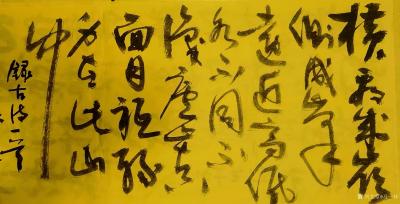 横看成岭
侧成峰
远近高低
各不同不
识庐山真
面目只缘
身在此山
中
录古诗一首